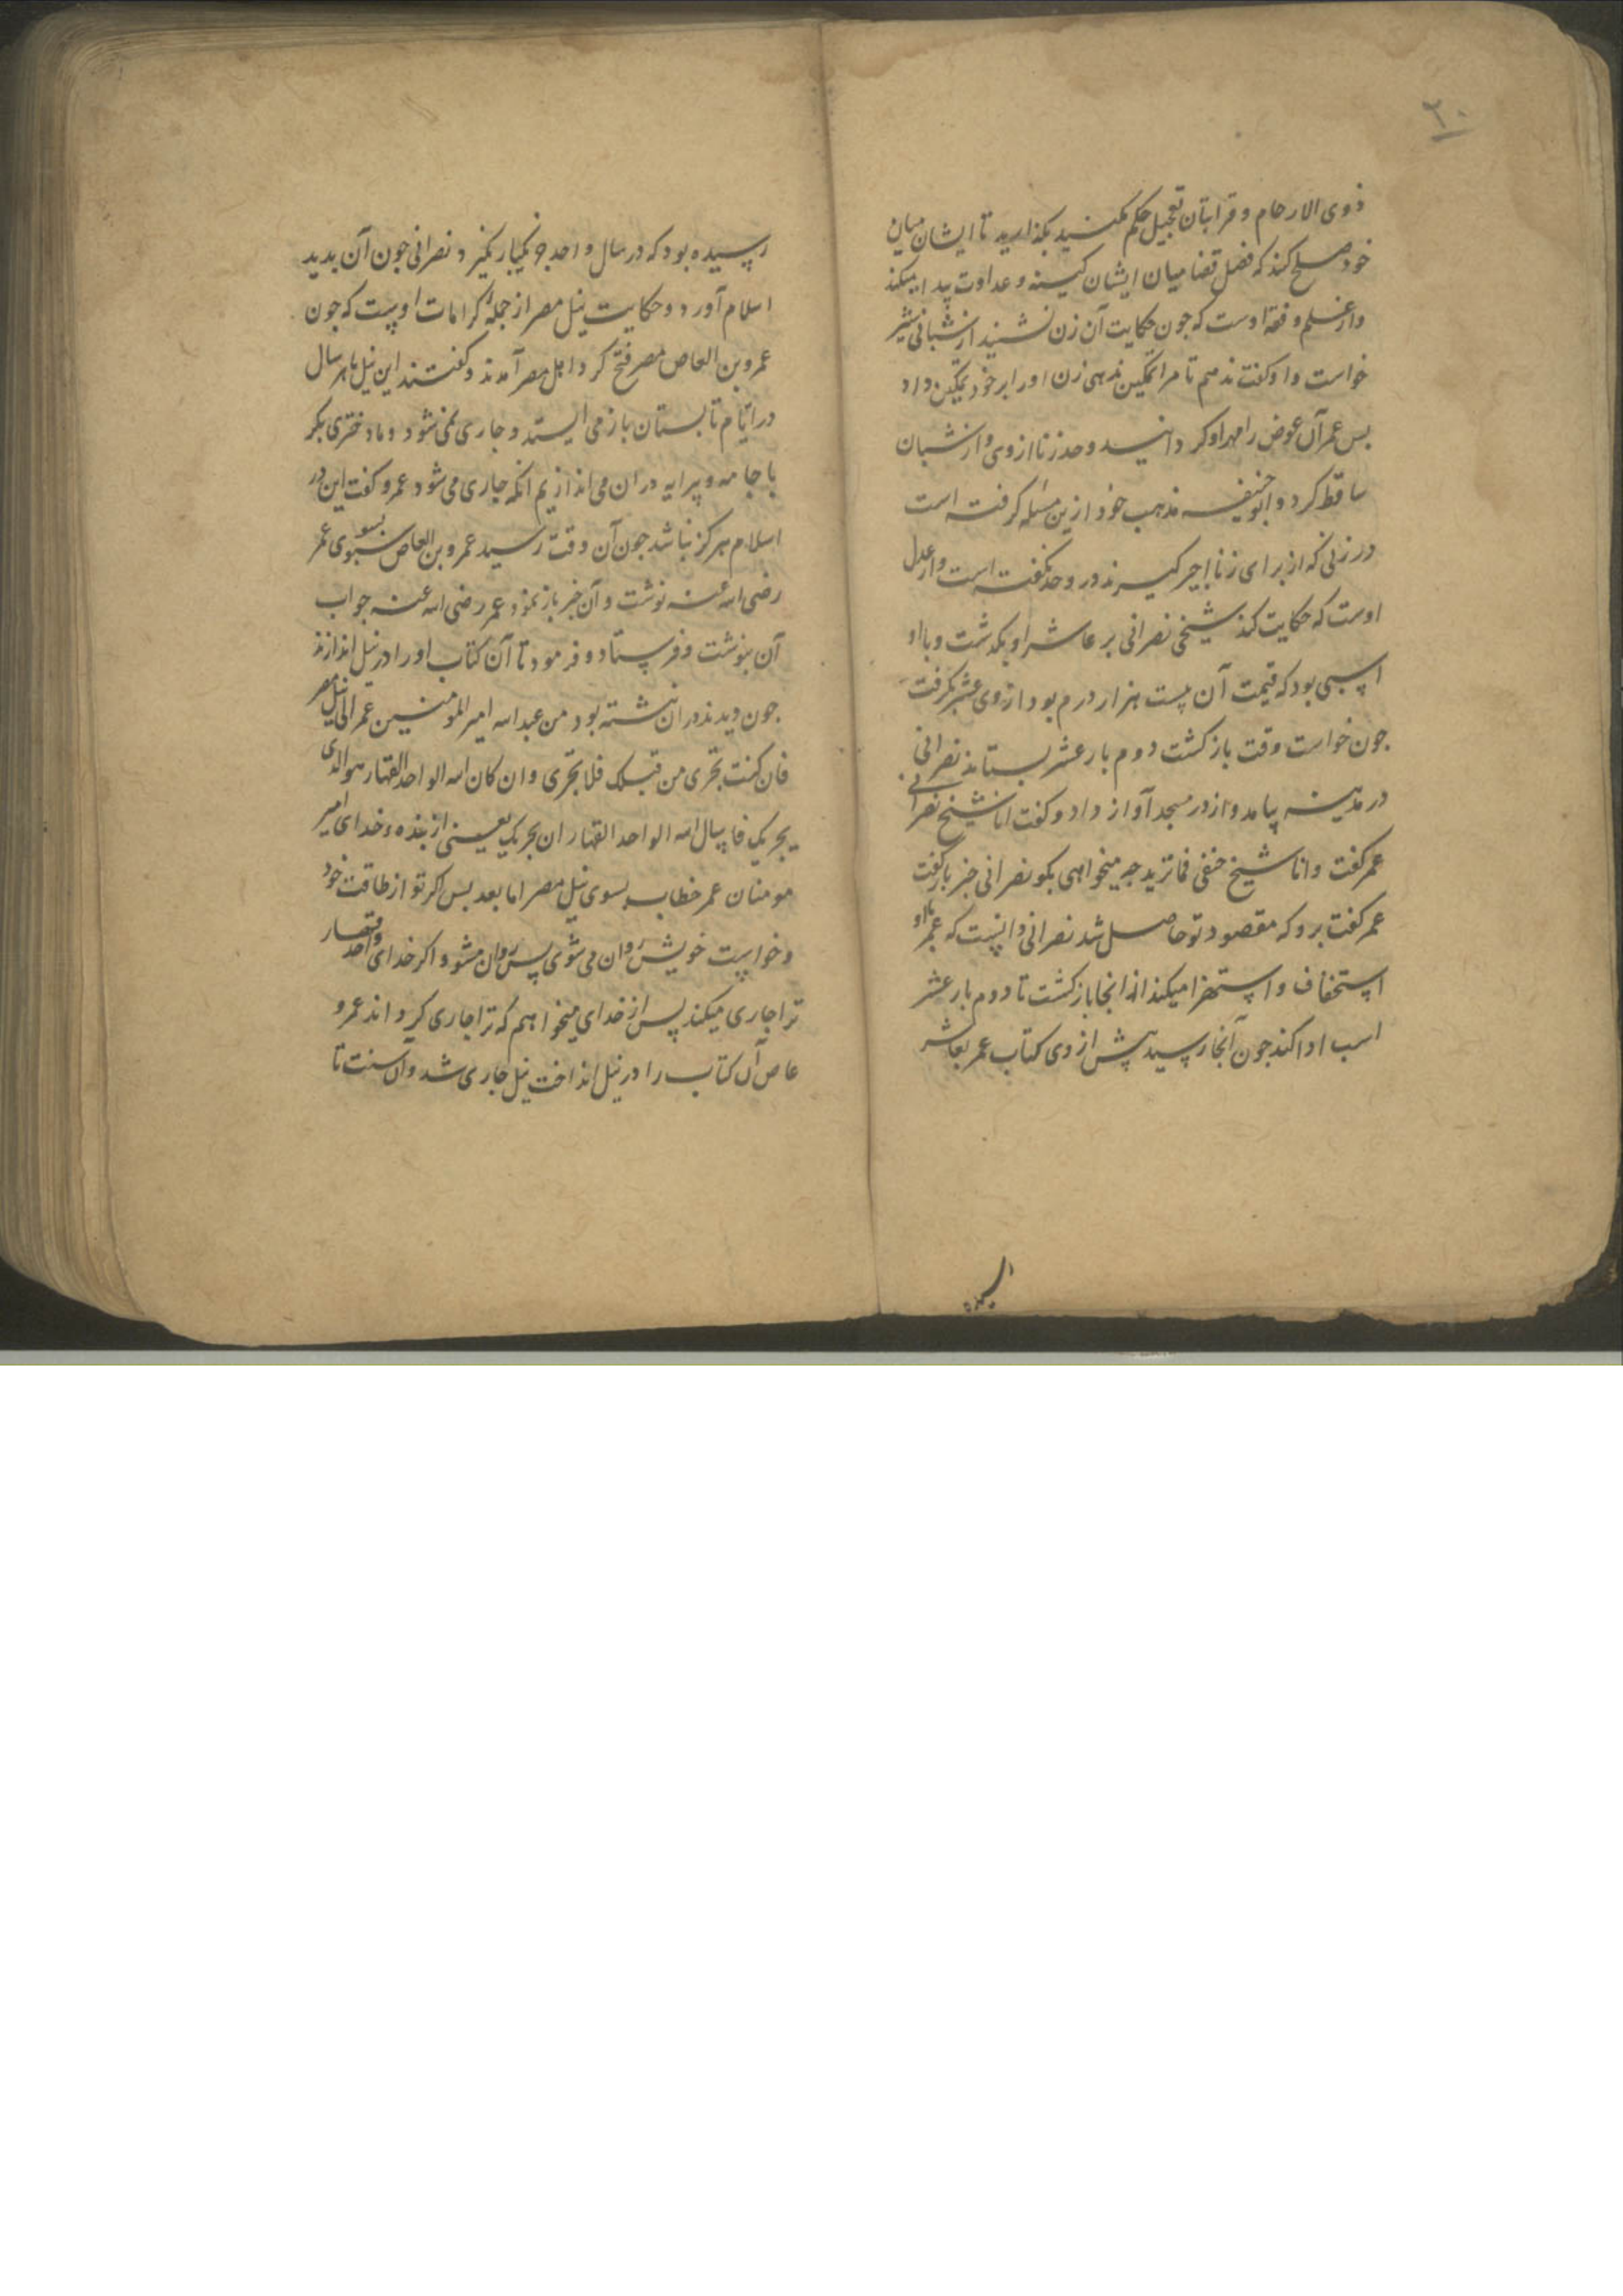 ۲۰
ذوی الارحام و قرابتان تعجیل حکم مکنید بکذارید تا ایشان میان
خود صلح کنند که فصل قضا میان ایشان کینه و عداوت پیدا میکند
و از علم و فقه اوست که جون حکایت آن زن شنید از شبانی شیر
خواست و او کفت ندهم تا مرا تمکین ندهی زن او را بر خود تمکین داد
بس عمر آن عوض را مهر او کردانید و حد زنا از وی و از شبان
ساقط کرد و ابو حنیفه مذهب خود ازین مسئله کرفته است
در زنی که از برای زنا اجیر کیرند درو حد نکفته است و از عدل
اوست که حکایت کنند شیخی نصرانی بر عاشر او بکذشت و با او
اسبی بود که قیمت آن بیست هزار درم بود از وی عشر بکرفت
جون خواست وقت بازکشت دوم بار عشر بستاند نصرانی
در مدینه بیامد و از در مسجد آواز داد و کفت انا شیخ نصرانی
عمر کفت و انا شیخ حنفی فما ترید جه میخواهی بکو نصرانی خبر باز کفت
عمر کفت برو که مقصود تو حاصل شد نصرانی دانست که عمر با او
استخفاف و استهزا میکند از انجا بازکشت تا دوم بار عشر
اسب ادا کند جون آنجا رسید پیش از وی کتاب عمر بعاشر
رسیده بود که در سال واحد جز یکبار نکیرد نصرانی جون آن بدید
اسلام آورد و حکایت نیل مصر از جمله کرامات اوست که جون
عمرو بن العاص مصر فتح کرد اهل مصر آمدند و کفتند این نیل ما هر سال
در ایام تابستان باز می ایستد و جاری نمی شود و ما دختری بکر
با جامه و پیرایه در ان می اندازیم انکه جاری می شود عمرو کفت این در
اسلام هرکز نباشد جون آن وقت رسید عمرو بن العاص بسوی عمر
رضی الله عنه نوشت و آن خبر باز نمود عمر رضی الله عنه جواب
آن بنوشت و فرستاد و فرمود تا آن کتاب او را در نیل اندازند
جون دیدند در ان نبشته بود من عبد الله امیر المومنین عمر الی نیل مصر
فان کنت تجری من قبلک فلا تجری و ان کان الله الواحد القهار هو الذی
یجریک فاسال الله الواحد القهار ان یجریک یعنی از بنده خدای امیر
مومنان عمر خطاب بسوی نیل مصر اما بعد بس اکر تو از طاقت خود
و خواست خویش روان می شوی پس روان مشو و اکر خدای واحد قهار
ترا جاری میکند پس از خدای میخواهم که ترا جاری کرداند عمرو
عاص آن کتاب را در نیل انداخت نیل جاری شد و آن سنت تا